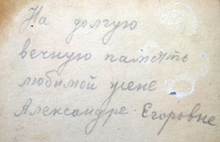 На долгую
вечную память
любимой жене
Александре Егоровне